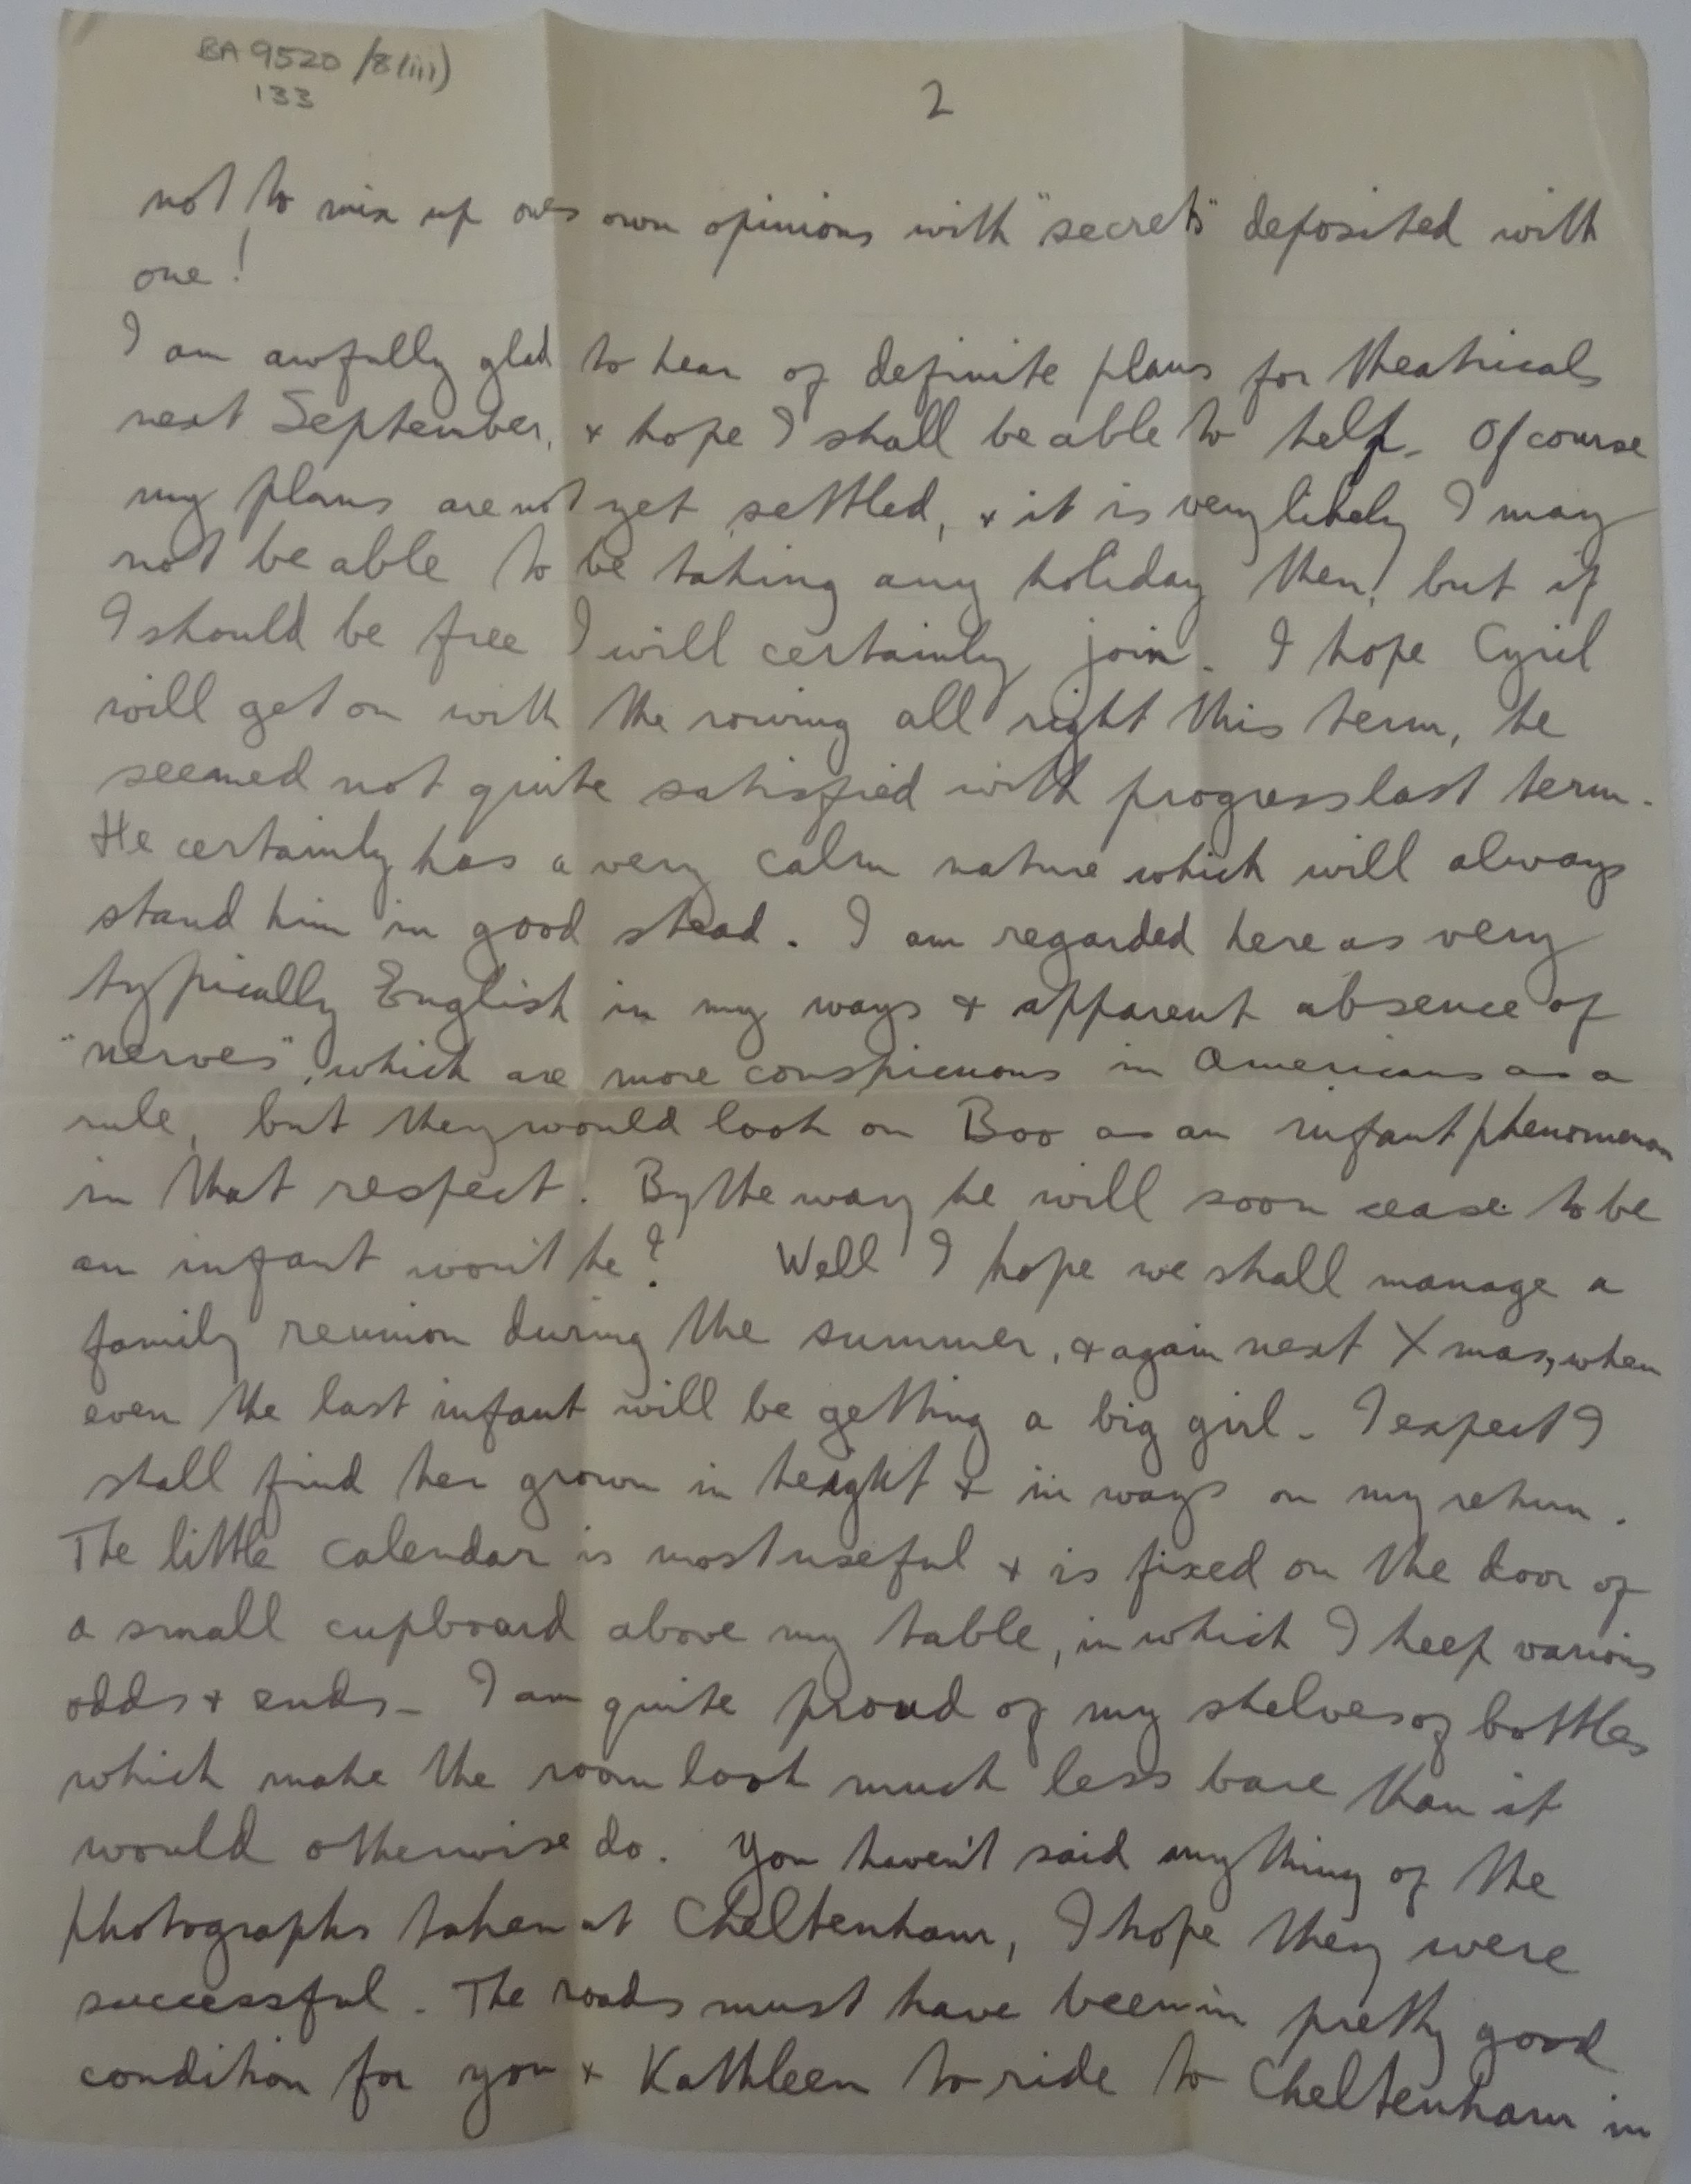 BA 9520/8(iii)
133
2
not to mix up ones own opinions with "secrets" deposited with
one!
I am awfully glad to hear of definite plans for theatricals
next September, & hope I shall be able to help. Of course
my plans are not yet settled, & it is very likely I may
not be able to be taking any holiday then! but if
I should be free I will certainly join. I hope Cyril
will get on with the rowing all right this term, he
seemed not quite satisfied with progress last term.
He certainly has a very calm nature which will always
stand him in good stead. I am regarded here as very
typically English in my ways & apparent absence of
"nerves", which are more conspicuous in Americans as a
rule, but they would look on Boo as an infant phenomenon
in that respect. By the way he will soon cease to be
an infant won't he? Well I hope we shall manage a
family reunion during the summer, & again next Xmas, when
even the last infant will be getting a big girl. I expect I
shall find her grown in height & in ways on my return.
The little calendar is most useful & is fixed on the door of
a small cupboard above my table, in which I keep various
odds & ends. I am quite proud of my shelves of bottles
which make the room look much less bare than it
would otherwise do. You haven't said anything of the
photographs taken at Cheltenham, I hope they were
successful. The roads must have been in pretty good
condition for you & Kathleen to ride to Cheltenham in